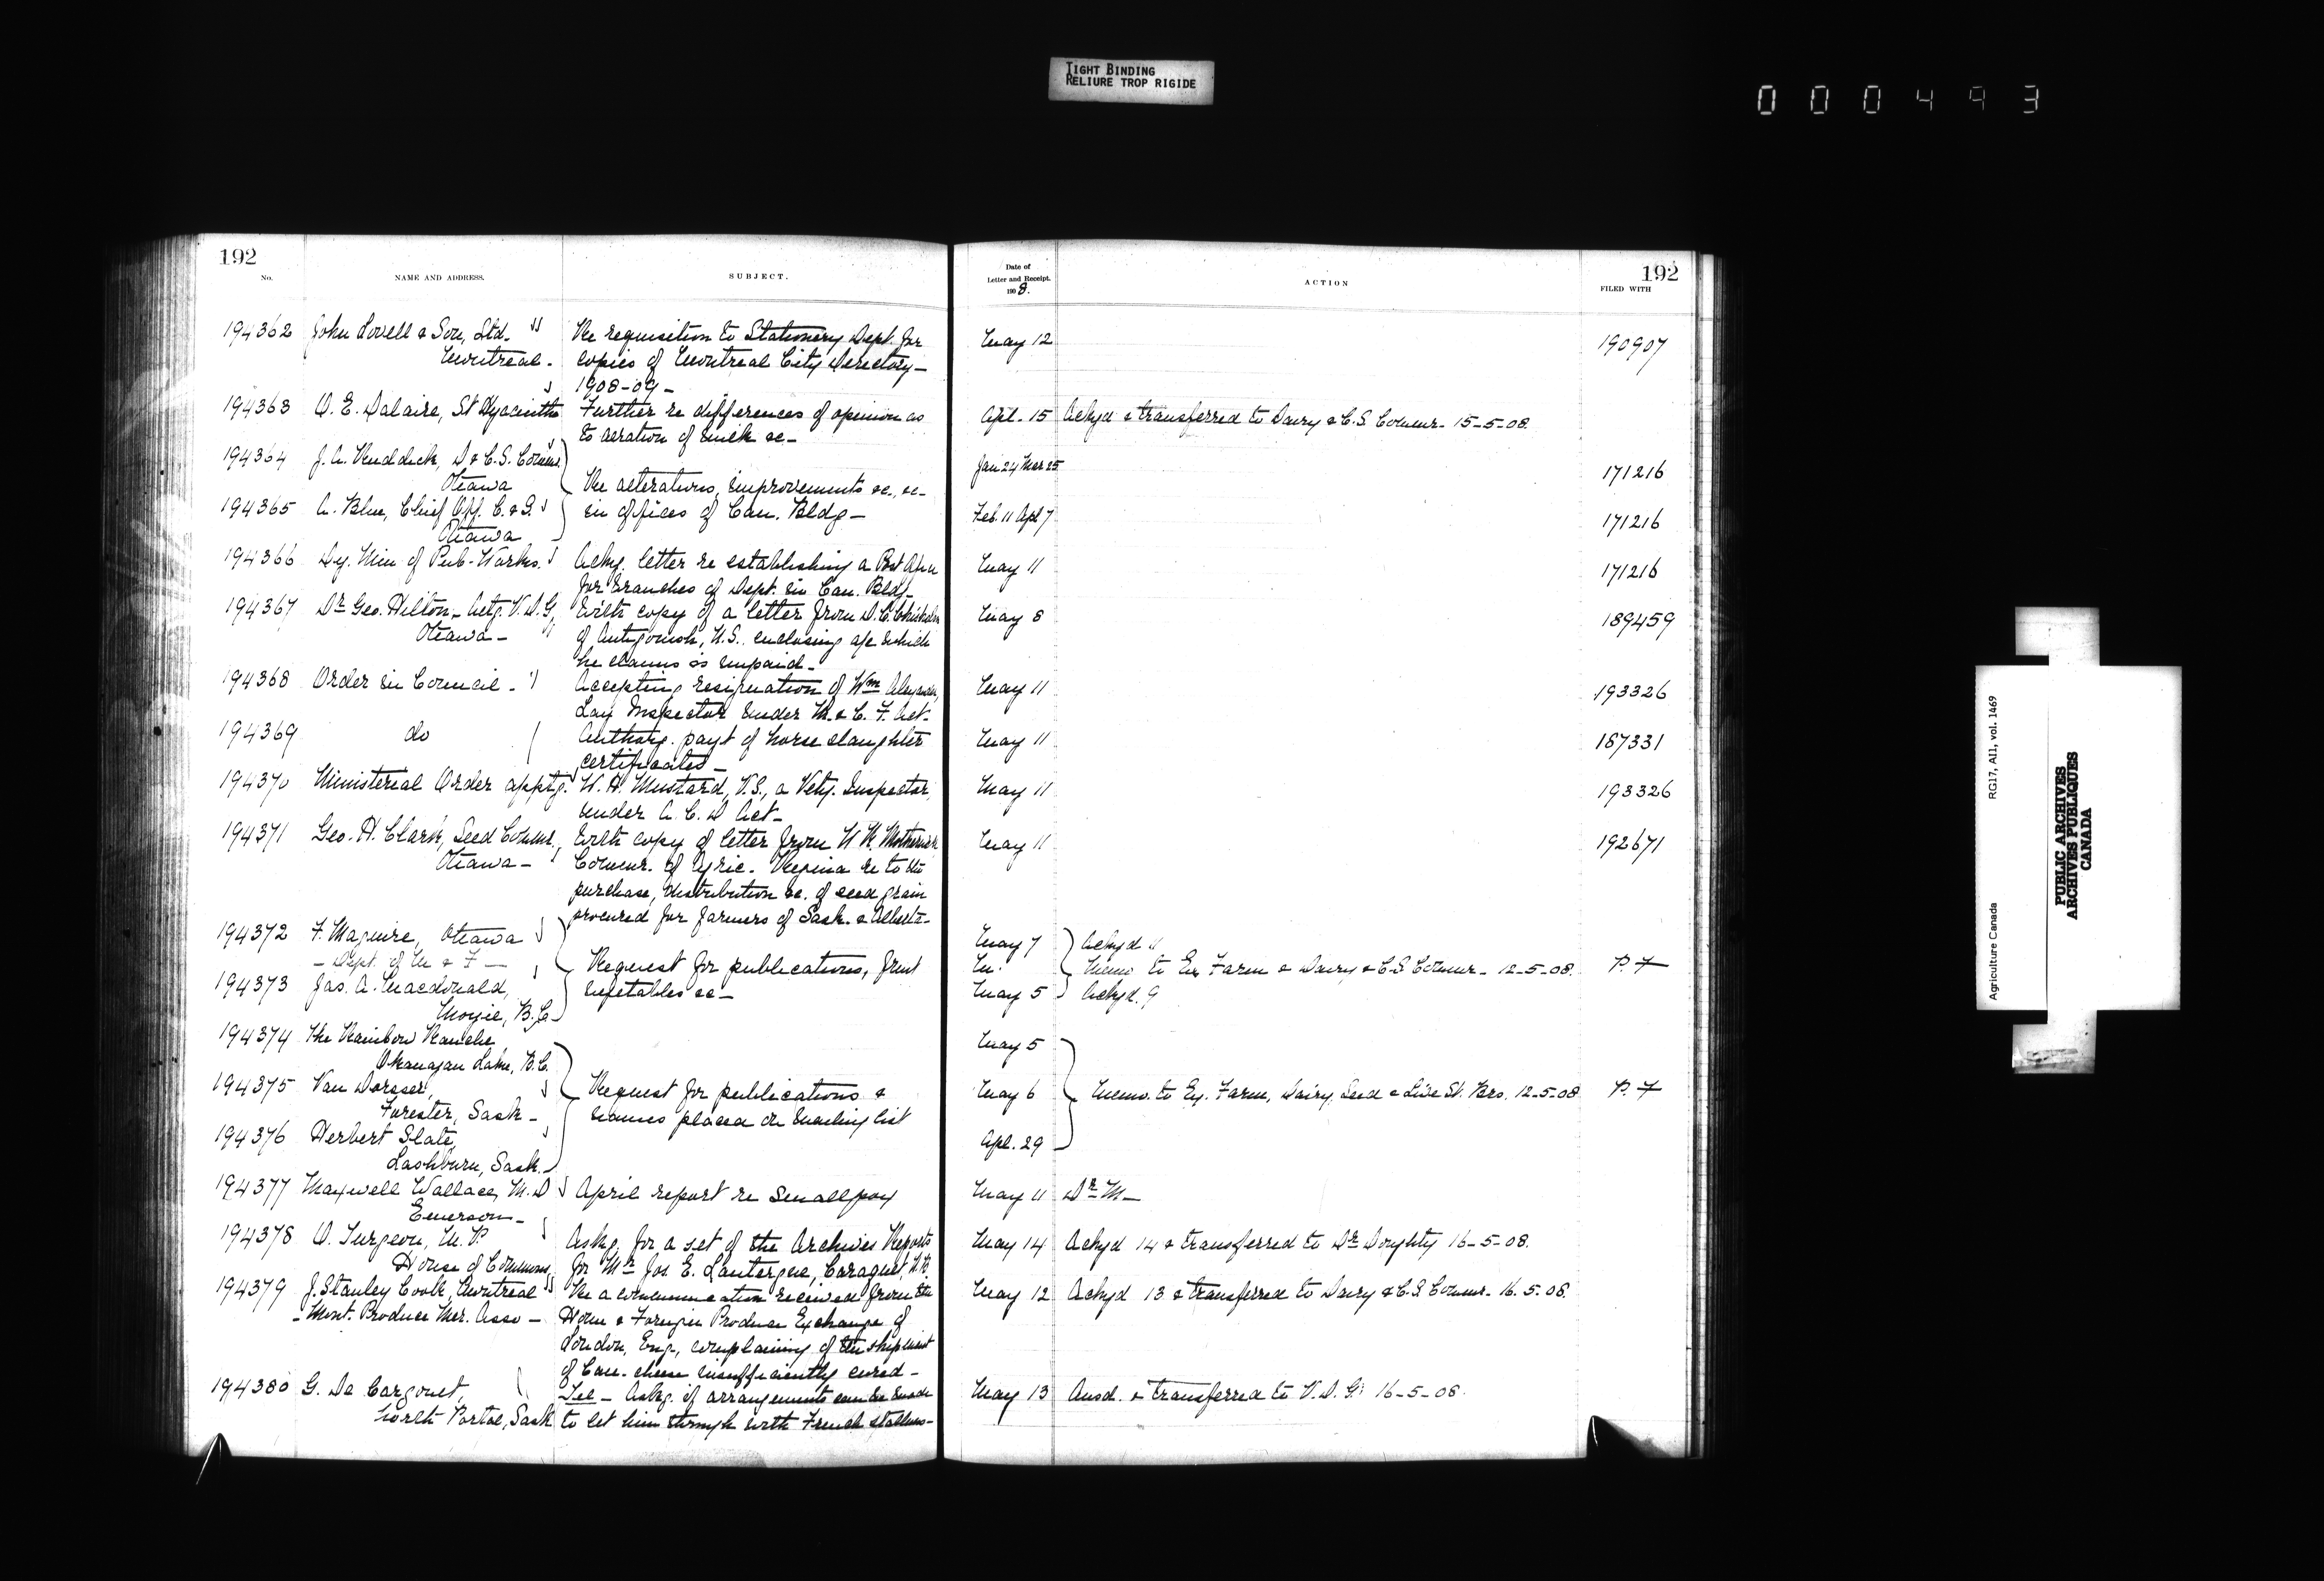 TIGHT BINDING
RELIURE TROP RIGIDE
000493
192
No.
NAME AND ADDRESS.
SUBJECT.
194362 John Lovell & Son, Ltd. Re requisition to Stationery Dept. for
Montreal - copies of Montreal City Directory -
1908-09 -
194363 O. E. Dalaire, St Hyacinthe Further re differences of opinion as
to aeration of milk &c -
194364 J. A. Ruddick, D & C.S. Commr.
Ottawa Re alterations, improvements &c, &c -
194365 A. Blue, Chief Off. C. & S. in offices of Can. Bldg -
Ottawa
194366 Dy. Min of Pub. Works. Ackg. letter re establishing a
for branches of Dept. in Can. Bldg -
194367 Dr Geo. Hilton - Actg. V.D.G, With copy of a letter from D. C. Chisholm
Ottawa - of Antigonish, N.S. enclosing a/c which
he claims is unpaid -
194368 Order in Council - Accepting resignation of Wm Alexander,
Lay Inspector under M. & C. F. Act -
194369 do Authorg. payt of horse slaughter
certificates -
194370 Ministerial Order apptg. W. H. Mustard, V.S., a Vety. Inspector,
under A. C. D Act -
194371 Geo. H. Clark, Seed Commr., With copy of letter from W R Motherwell
Ottawa - Commr. of Agric. Regina re to the
purchase, distribution &c. of seed grain
procured for farmers of Sask. & Alberta -
194372 F. Maguire, Ottawa
- Dept. of M & F - Request for publications, fruit
194373 Jas. A. Macdonald, vegetables &c -
Moyie, B.C.
194374 The Rainbow Ranche,
Okanagan Lake, B.C.
194375 Van Dorsser, Request for publications &
Forester, Sask - names placed on mailing list
194376 Herbert Slate,
Lashburn, Sask. -
194377 Maxwell Wallace, M.D April report re smallpox
Emerson -
194378 O. Turgeon, M.P. Askg. for a set of the Archives Reports
House of Commons, for Mr Jos. E. Lanteigne, Caraquet, N.B.
194379 J. Stanley Cook, Montreal Re a communication received from the
- Mont. Produce Mer. Asso - Home & Foreign Produce Exchange of
London, Eng., complaining of the shipment
of Can. cheese insufficiently cured -
194380 G. De Cargouet, Tel - Askg. if arrangements can be made
North Portal, Sask. to let him through with French stallions -
Date of
Letter and Receipt.
1908.
ACTION
192
FILED WITH
May 12 190907
Apl. 15 Ackgd & transferred to Dairy & C.S. Commr - 15-5-08.
Jan 24 Mar 25 171216
Feb. 11 Apl 7 171216
May 11 171216
May 8 189459
May 11 193326
May 11 187331
May 11 193326
May 11 192671
May 7 Ackgd
Memo to Ex. Farm & Dairy & C.S Commr - 12-5-08. P. F
May 5 Ackgd. 9
May 5
May 6 Memo. to Ex. Farm, Dairy, Seed & Live St. Brs. 12-5-08 P. F
Apl. 29
May 11 Dr M -
May 14 Ackgd 14 & transferred to Dr Doughty 16-5-08.
May 12 Ackgd 13 & transferred to Dairy & C.S Commr - 16. 5. 08.
May 13 Ansd. & transferred to V.D.G. 16-5-08.
Agriculture Canada RG17, A11, vol. 1469
PUBLIC ARCHIVES
ARCHIVES PUBLIQUES
CANADA